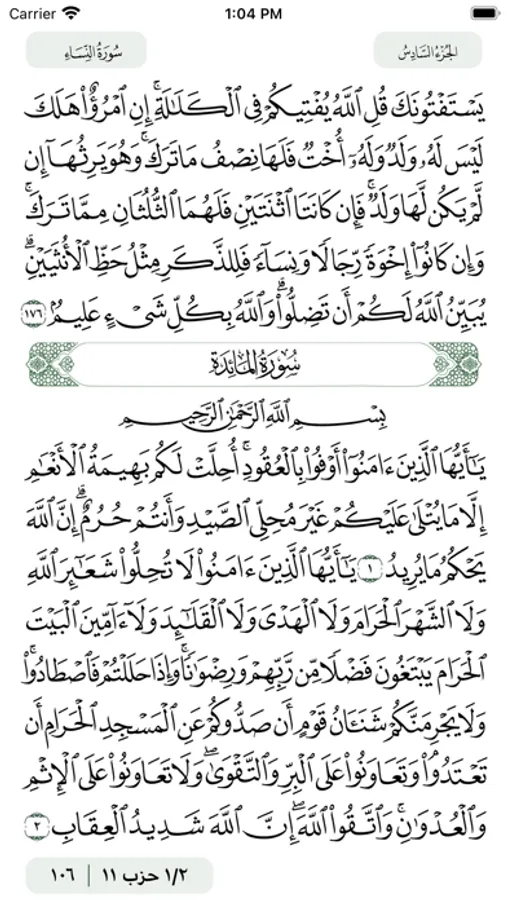 Carrier 1:04 PM
الجزء السادس سورة النساء
يَسْتَفْتُونَكَ قُلِ ٱللَّهُ يُفْتِيكُمْ فِى ٱلْكَلَٰلَةِ ۚ إِنِ ٱمْرُؤٌا۟ هَلَكَ
لَيْسَ لَهُۥ وَلَدٌ وَلَهُۥٓ أُخْتٌ فَلَهَا نِصْفُ مَا تَرَكَ ۚ وَهُوَ يَرِثُهَآ إِن
لَّمْ يَكُن لَّهَا وَلَدٌ ۚ فَإِن كَانَتَا ٱثْنَتَيْنِ فَلَهُمَا ٱلثُّلُثَانِ مِمَّا تَرَكَ ۚ
وَإِن كَانُوٓا۟ إِخْوَةً رِّجَالًا وَنِسَآءً فَلِلذَّكَرِ مِثْلُ حَظِّ ٱلْأُنثَيَيْنِ ۗ
يُبَيِّنُ ٱللَّهُ لَكُمْ أَن تَضِلُّوا۟ ۗ وَٱللَّهُ بِكُلِّ شَىْءٍ عَلِيمٌۢ ١٧٦
سُورَةُ المَائِدَةِ
بِسْمِ ٱللَّهِ ٱلرَّحْمَٰنِ ٱلرَّحِيمِ
يَٰٓأَيُّهَا ٱلَّذِينَ ءَامَنُوٓا۟ أَوْفُوا۟ بِٱلْعُقُودِ ۚ أُحِلَّتْ لَكُم بَهِيمَةُ ٱلْأَنْعَٰمِ
إِلَّا مَا يُتْلَىٰ عَلَيْكُمْ غَيْرَ مُحِلِّى ٱلصَّيْدِ وَأَنتُمْ حُرُمٌ ۗ إِنَّ ٱللَّهَ
يَحْكُمُ مَا يُرِيدُ ١ يَٰٓأَيُّهَا ٱلَّذِينَ ءَامَنُوا۟ لَا تُحِلُّوا۟ شَعَٰٓئِرَ ٱللَّهِ
وَلَا ٱلشَّهْرَ ٱلْحَرَامَ وَلَا ٱلْهَدْىَ وَلَا ٱلْقَلَٰٓئِدَ وَلَآ ءَآمِّينَ ٱلْبَيْتَ
ٱلْحَرَامَ يَبْتَغُونَ فَضْلًا مِّن رَّبِّهِمْ وَرِضْوَٰنًا ۚ وَإِذَا حَلَلْتُمْ فَٱصْطَادُوا۟ ۚ
وَلَا يَجْرِمَنَّكُمْ شَنَـَٔانُ قَوْمٍ أَن صَدُّوكُمْ عَنِ ٱلْمَسْجِدِ ٱلْحَرَامِ أَن
تَعْتَدُوا۟ ۘ وَتَعَاوَنُوا۟ عَلَى ٱلْبِرِّ وَٱلتَّقْوَىٰ ۖ وَلَا تَعَاوَنُوا۟ عَلَى ٱلْإِثْمِ
وَٱلْعُدْوَٰنِ ۚ وَٱتَّقُوا۟ ٱللَّهَ ۖ إِنَّ ٱللَّهَ شَدِيدُ ٱلْعِقَابِ ٢
١/٢ حزب ١١ | ١٠٦